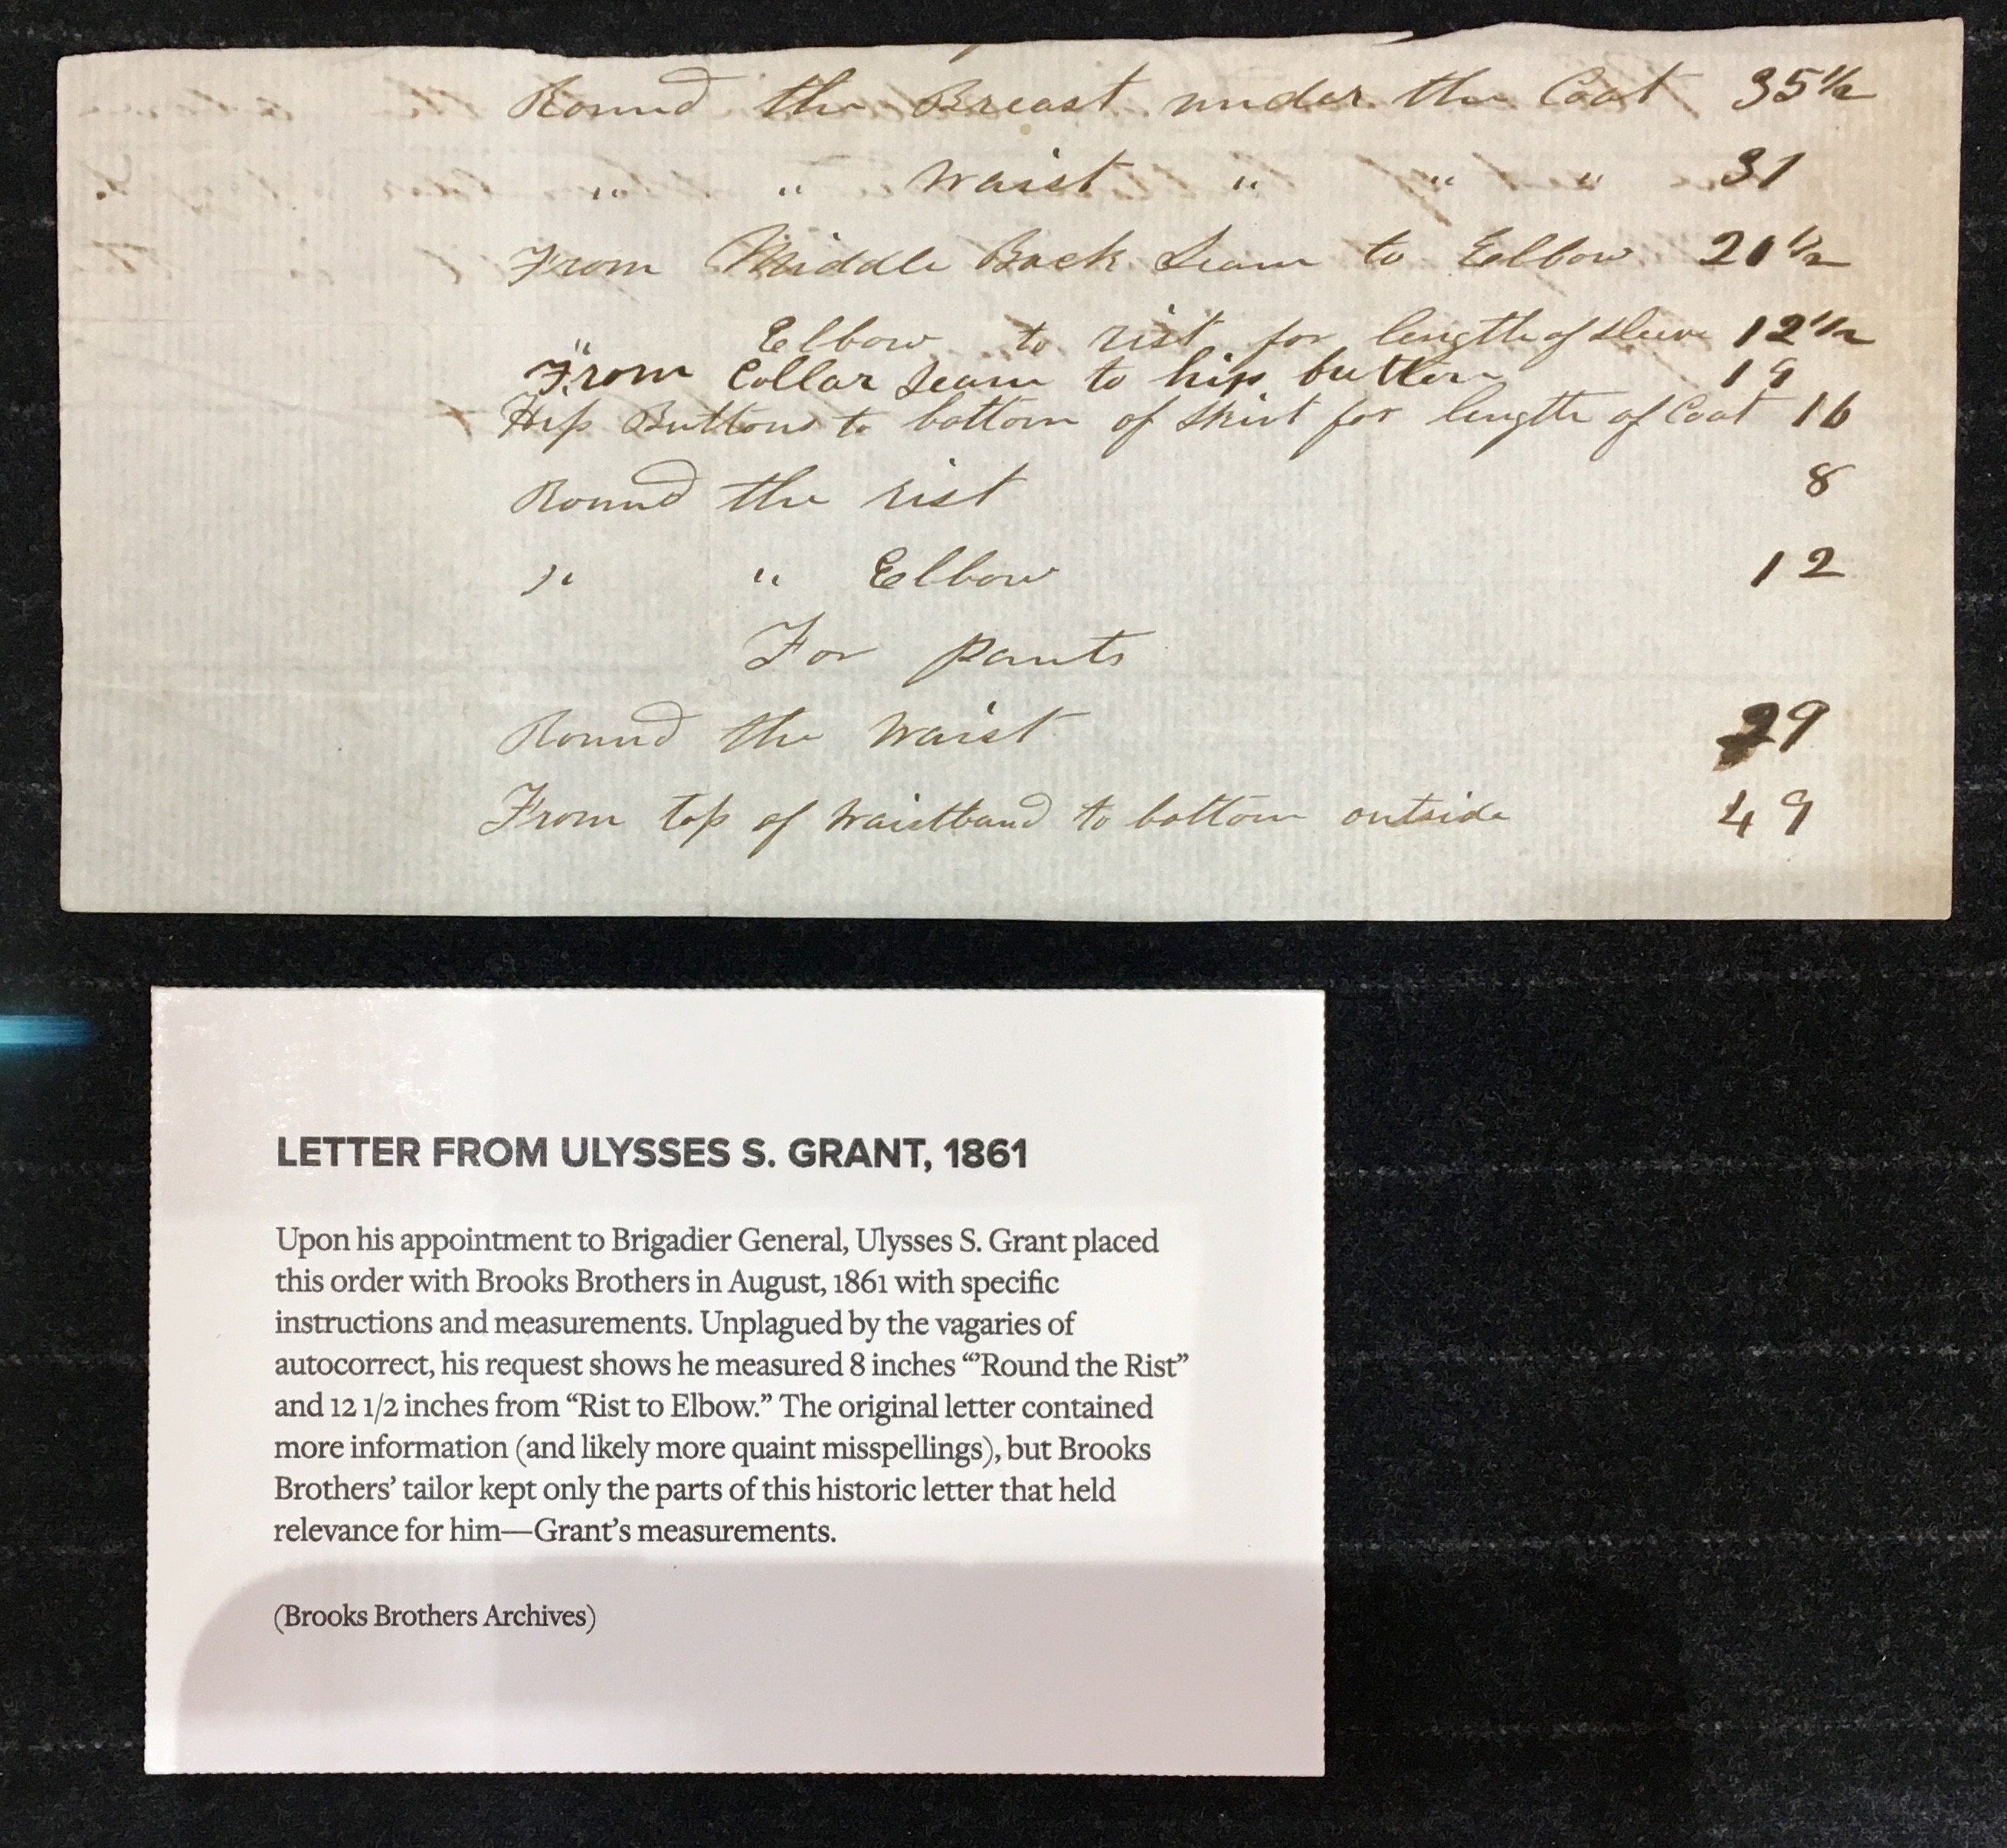 Round the Breast under the Coat 35 1/2
" " Waist " " " 31
From Middle Back Seam to Elbow 20 1/2
" Elbow to rist for length of sleeve 12 1/2
From Collar seam to hip button 19
Hip Buttons to bottom of skirt for length of Coat 16
Round the rist 8
" " Elbow 12
For pants
Round the Waist 29
From top of waistband to bottom outside 49
LETTER FROM ULYSSES S. GRANT, 1861
Upon his appointment to Brigadier General, Ulysses S. Grant placed
this order with Brooks Brothers in August, 1861 with specific
instructions and measurements. Unplagued by the vagaries of
autocorrect, his request shows he measured 8 inches “’Round the Rist”
and 12 1/2 inches from “Rist to Elbow.” The original letter contained
more information (and likely more quaint misspellings), but Brooks
Brothers’ tailor kept only the parts of this historic letter that held
relevance for him—Grant’s measurements.
(Brooks Brothers Archives)